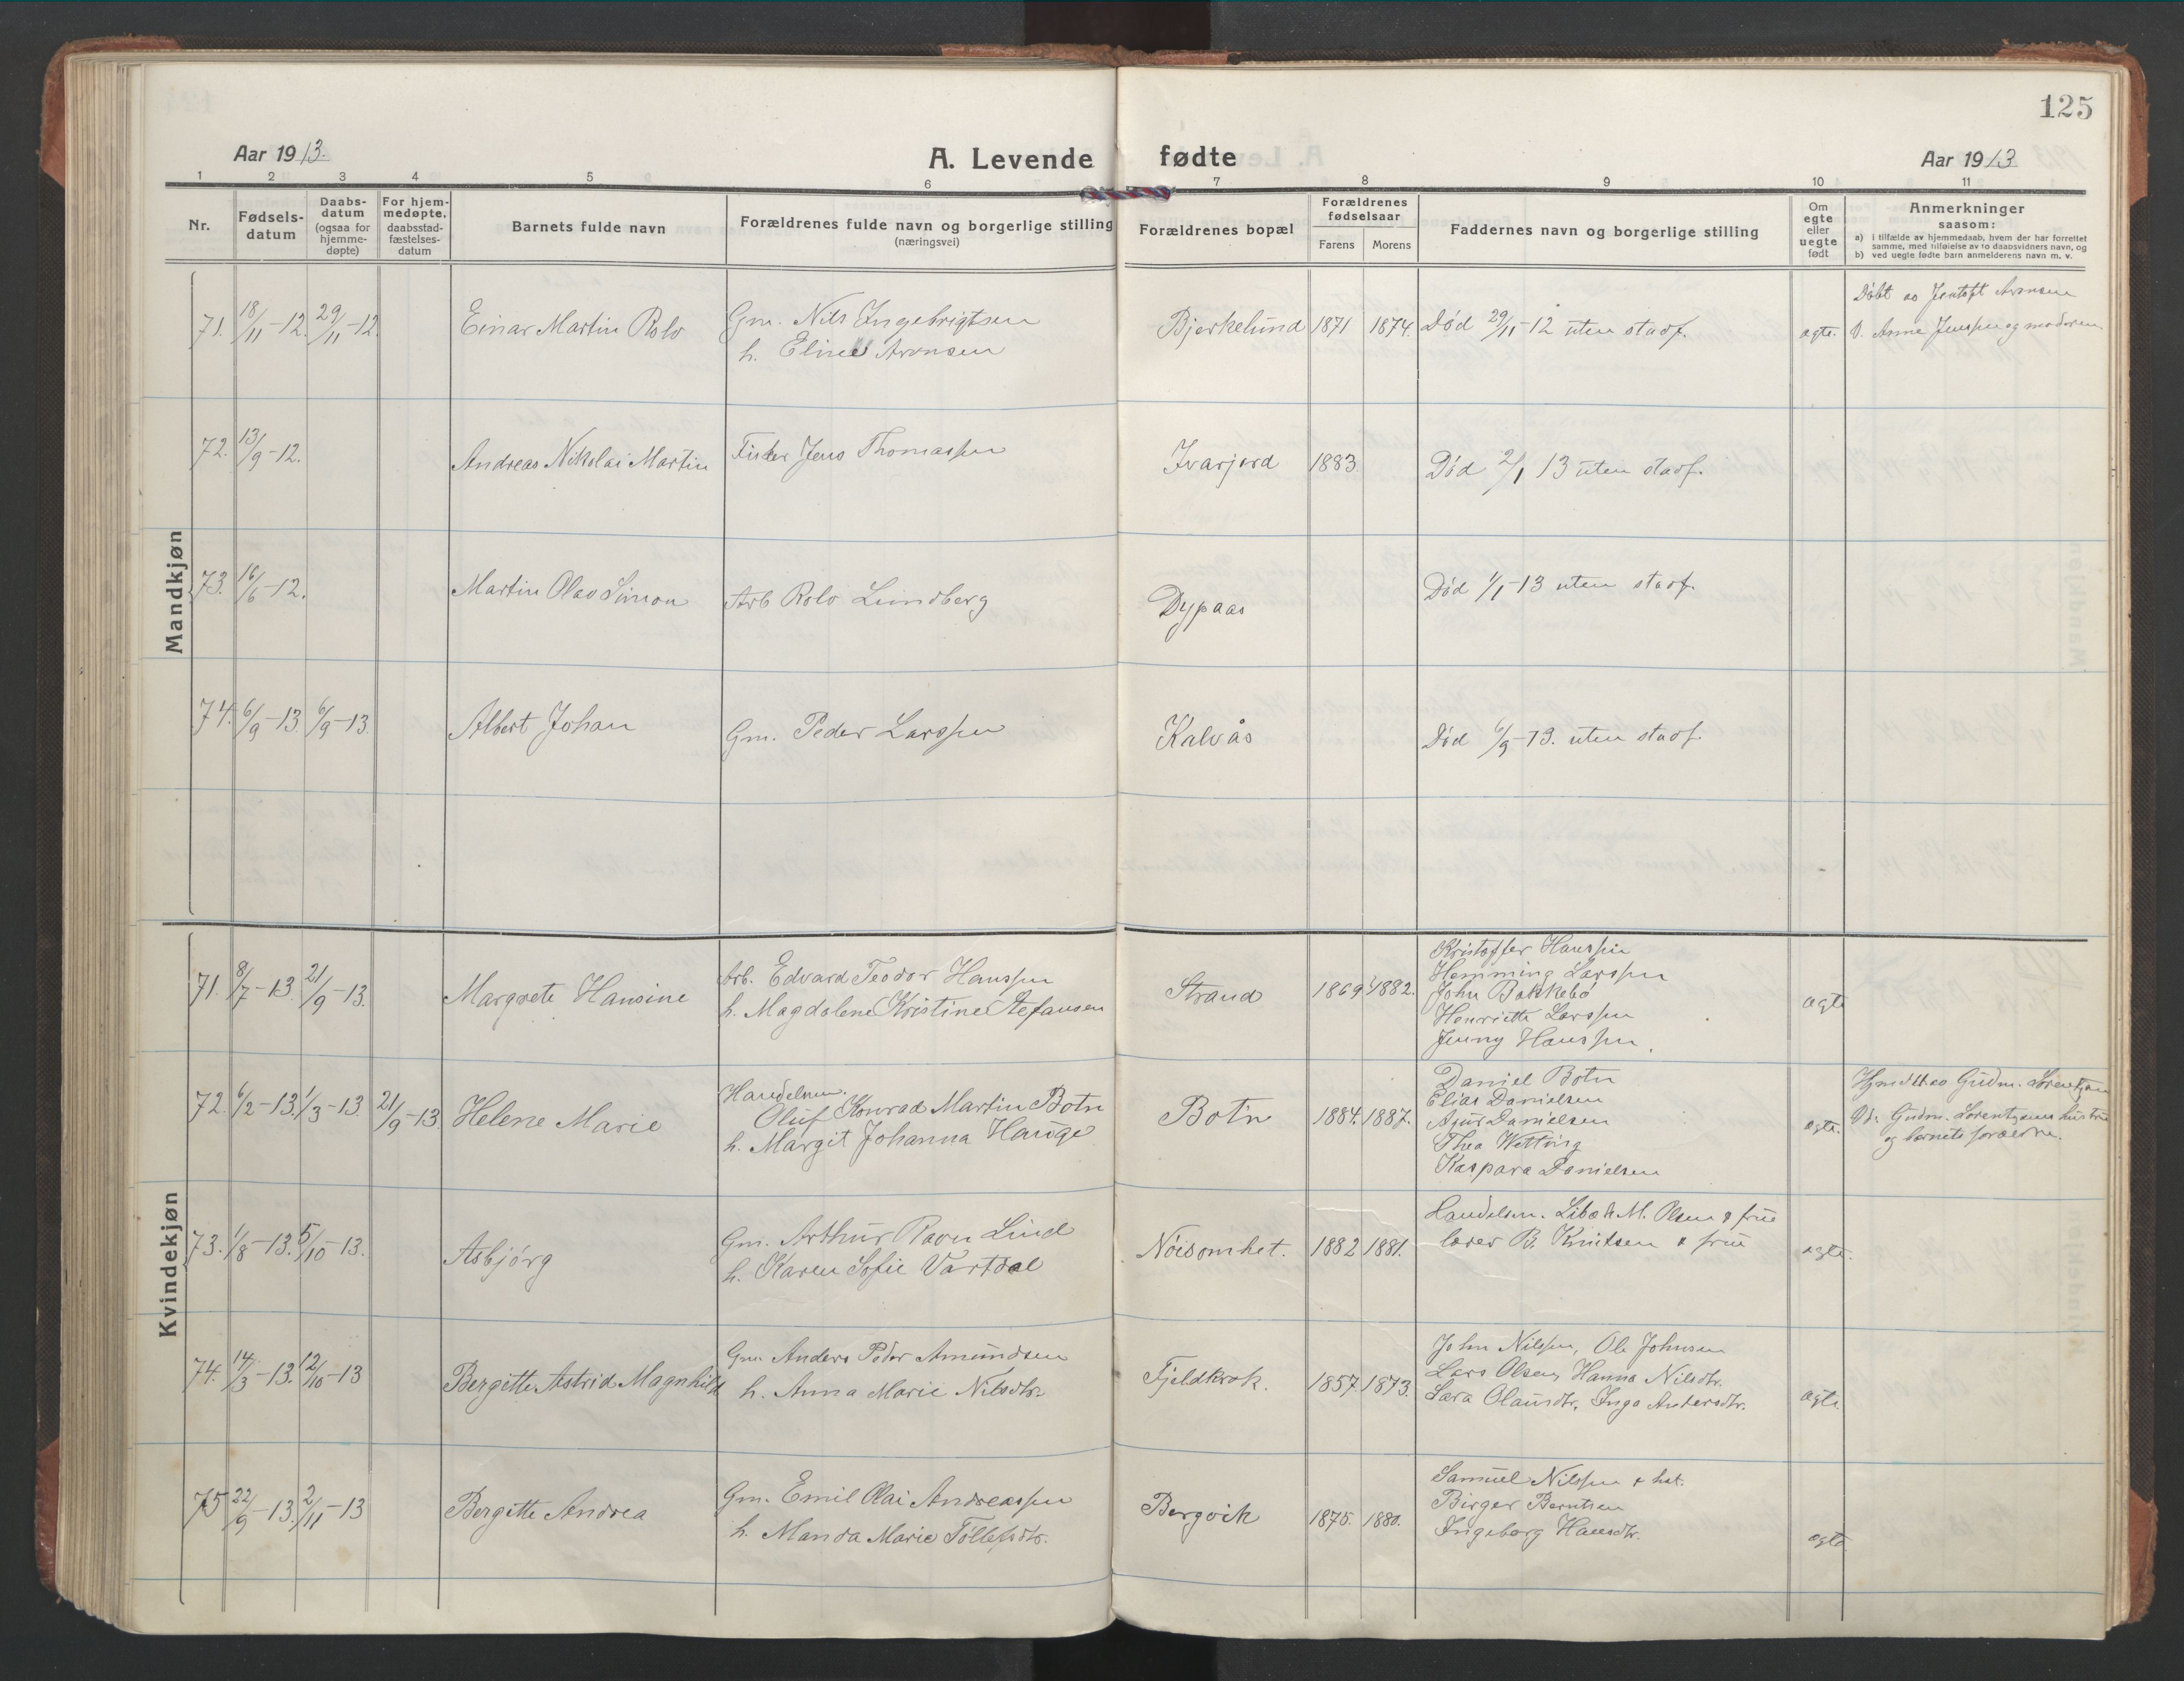 125
Aar 1913.
A. Levende fødte
Aar 1913
1 2 3 4 5 6 7 8 9 10 11
Nr.
Fødsels-
datum
Daabs-
datum
(ogsaa for
hjemme-
døpte)
For hjem-
medøpte,
daabsstad-
fæstelses-
datum
Barnets fulde navn
Forældrenes fulde navn og borgerlige stilling
(næringsvei)
Forældrenes bopæl
Forældrenes
fødselsaar
Farens Morens
Faddernes navn og borgerlige stilling
Om
egte
eller
uegte
født
Anmerkninger
saasom:
a) i tilfælde av hjemmedaab, hvem der har forrettet
samme, med tilføielse av to daabsvidners navn, og
b) ved uegte fødte barn anmelderens navn m. v.
Mandkjøn
71. 18/11-12. 29/11-12. Einar Martin Rolv
Gm. Nils Ingebrigtsen
h. Eline Aronsen
Bjerkelund 1871 1874. Död 29/11-12 uten stadf. ægte.
Döbt av Jentoft Aronsen
V. Anne Jenssen og moderen
72. 13/9-12. Andreas Nikolai Martin Fisker Jens Thomassen Ivarjord 1883. Död 2/1 13 uten stadf.
73. 16/6-12. Martin Olav Simon Arb Rolv Lundberg Dypaas Död 1/1-13 uten stadf.
74. 6/9-13. 6/9-13. Albert Johan Gm. Peder Larssen Kalvås Död 6/9-13. uten stadf.
Kvindekjøn
71. 8/7-13. 21/9-13. Margrete Hansine
Arb. Edvard Teodor Hanssen
h. Magdalene Kristine Stefansen
Strand 1869 1882.
Kristoffer Hanssen
Hemming Larssen
John Bakkebö
Henriette Larssen
Jenny Hanssen.
ægte
72. 6/2-13. 1/3-13. 21/9-13. Helene Marie
Handelsm.
Oluf Konrad Martin Botn
h. Margit Johanna Hauge
Botn 1884. 1887.
Daniel Botn
Elias Danielsen
Danielsen
Thea Wetting
Kaspara Danielsen
ægte.
Gudm. Lorentzen
Vd: Gudm. Lorentzens hustru
og barnets foræeldre.
73. 1/8-13. 5/10-13. Asbjörg
Gm. Arthur Ravn Lind
h. Karen Sofie Vartdal
Nöisomhet. 1882 1881.
Handelsm. M. Olsen & frue
lærer B. Knutsen & frue
ægte.
74. 14/3-13. 12/10-13 Bergitte Astrid Magnhild
Gm. Anders Peder Amundsen
h. Anna Marie Nilsdtr.
Fjeldkrok. 1857 1873.
John Nilssen, Ole Johnsen
Lars Olsen, Hanna Nilsdtr.
Sara Olausdtr, Inga Andersdtr.
ægte.
75 22/9-13. 2/11-13 Bergitte Andrea
Gm. Emil Olai Andreassen
h. Manda Marie Tollefsdtr.
Bergvik 1875. 1880.
Samuel Nilssen & hst.
Birger Berntsen
Ingeborg Hansdtr.
ægte